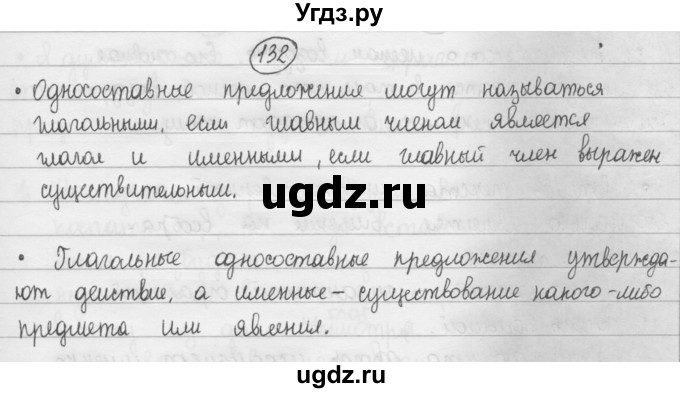 Угдз.ру
132
• Односоставные предложения могут называться
глагольными, если главным членом является
глагол и именными, если главный член выражен
существительным.
ugdz.ru
• Глагольные односоставные предложения утвержда-
ют действие, а именные – существование какого-либо
предмета или явления.
ugdz.ru